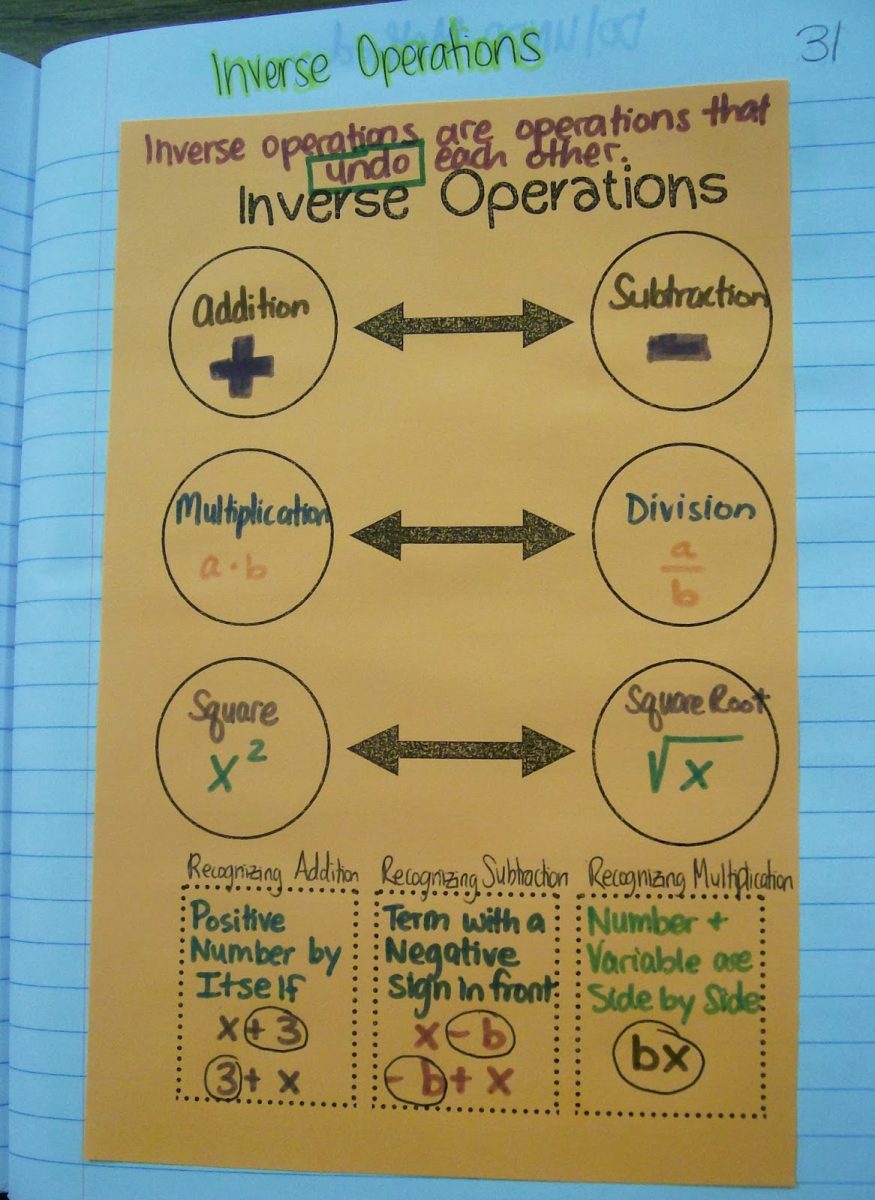 Inverse Operations
31
Inverse operations are operations that
undo each other.
Inverse Operations
Addition
+
Subtraction
-
Multiplication
a · b
Division
a
b
Square
x²
Square Root
√x
Recognizing Addition
Positive
Number by
Itself
x + 3
3 + x
Recognizing Subtraction
Term with a
Negative
Sign in front
x - b
- b + x
Recognizing Multiplication
Number +
Variable are
Side by Side
bx